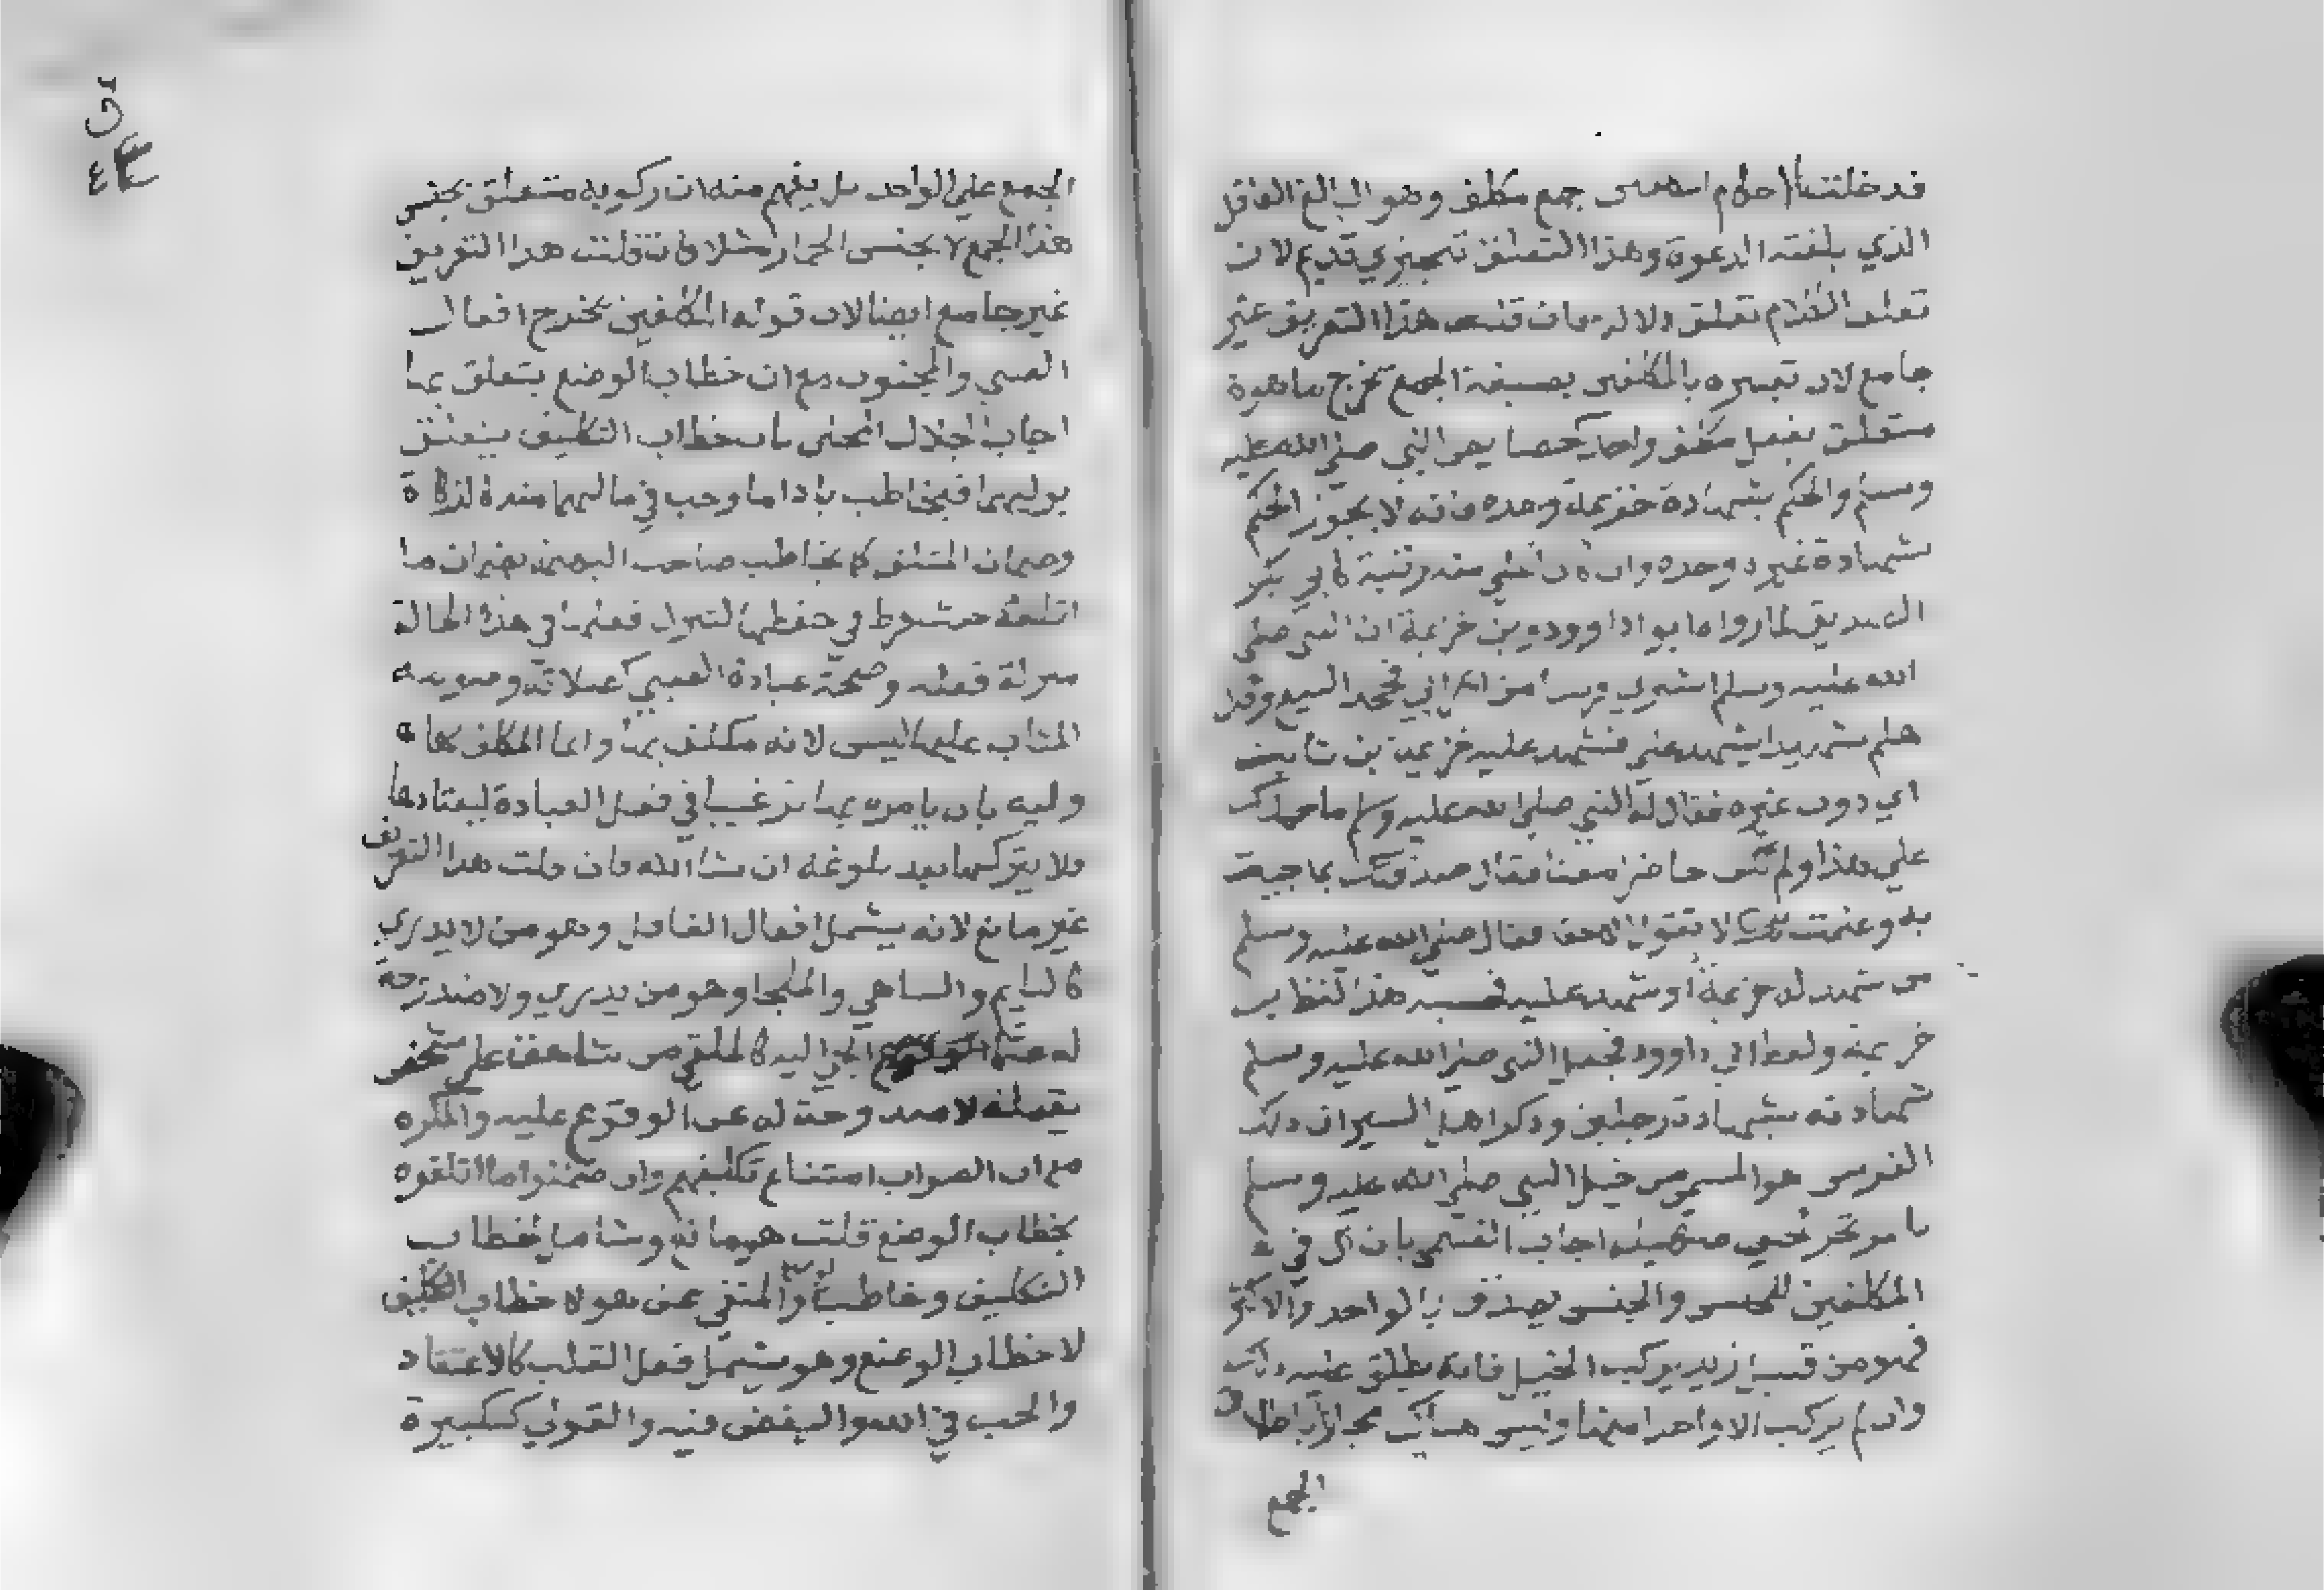 جمع مكلف وهو البالغ العاقل
الذي بلغته الدعوة وهذا التعلق تنجيزي قديم لان
تعلق الكلام تعلق دلالة فان قلت هذا التعريف غير
جامع لان تعبيره بالمكلفين بصيغة الجمع تخرج ما هو
متعلق بفعل مكلف واحد كخصايص النبي صلي الله عليه
وسلم والحكم بشهادة خزيمة وحده فانه لا يجوز الحكم
بشهادة غيره وحده وان كان اعلي منه رتبة كابي بكر
الصديق لما رواه ابو داوود وبن خزيمة ان النبي صلي
الله عليه وسلم اشتري فرسا من اعرابي فجحد البيع وقال
هلم شهيدا يشهد علي فشهد عليه خزيمة بن ثابت
اي دون غيره فقال له النبي صلي الله عليه وسلم ما حملك
علي هذا ولم تكن حاضرا معنا فقال صدقتك بما جيت
به وعلمت انك لا تقول الا حقا فقال صلي الله عليه وسلم
من شهد له خزيمة او شهد عليه فحسبه هذا لفظ ابن
خزيمة ولفظ ابي داوود فجعل النبي صلي الله عليه وسلم
شهادته بشهادة رجلين وذكر اهل السير ان ذلك
الفرس هو المسمي من خيل النبي صلي الله عليه وسلم
اجاب بان ال في
المكلفين للجنس والجنس يصدق بالواحد والاكثر
فهو من قبيل زيد يركب الخيل فانه يطلق عليه ذلك
وان لم يركب الا واحدا منها وليس هناك مجازا باطلاق
الجمع
الجمع علي الواحد بل يفهم منه ان ركوبه متعلق بجنس
هذا الجمع لا بجنس الحمار مثلا فان قلت هذا التعريف
غير جامع ايضا لان قوله المكلفين يخرج افعال
الصبي والمجنون مع ان خطاب الوضع يتعلق بها
اجاب الجلال المحلي بان خطاب التكليف يتعلق
بوليهما فيخاطب باداء ما وجب في مالهما منه كالزكاة
وضمان المتلف كما يخاطب صاحب البهيمة بضمان ما
اتلفته حيث فرط في حفظها لتنزل فعلها في هذه الحالة
منزلة فعله وصحة عبادة الصبي كصلاته وصومه
المثاب عليها ليس لانه مكلف بها وانما المكلف بها
وليه بان يامره بها ترغيبا في فعل العبادة ليعتادها
ولا يتركها بعد بلوغه ان شا الله فان قلت هذا التعريف
غير مانع لانه يشمل افعال الغافل وهو من لا يدري
كالنايم والساهي والملجا وهو من يدري ولا مندوحة
له عما الجي اليه كالملقي من شاهق علي شخص
يقتله لا مندوحة له عن الوقوع عليه والمكره
مع ان الصواب امتناع تكليفهم وان ضمنوا ما اتلفوه
بخطاب الوضع قلت هو مانع وشامل لخطاب
التكليف والمنفي عن هولا خطاب التكليف
لا خطاب الوضع وهو يشمل فعل القلب كالاعتقاد
والحب في الله والبغض فيه والقولي كتكبيرة